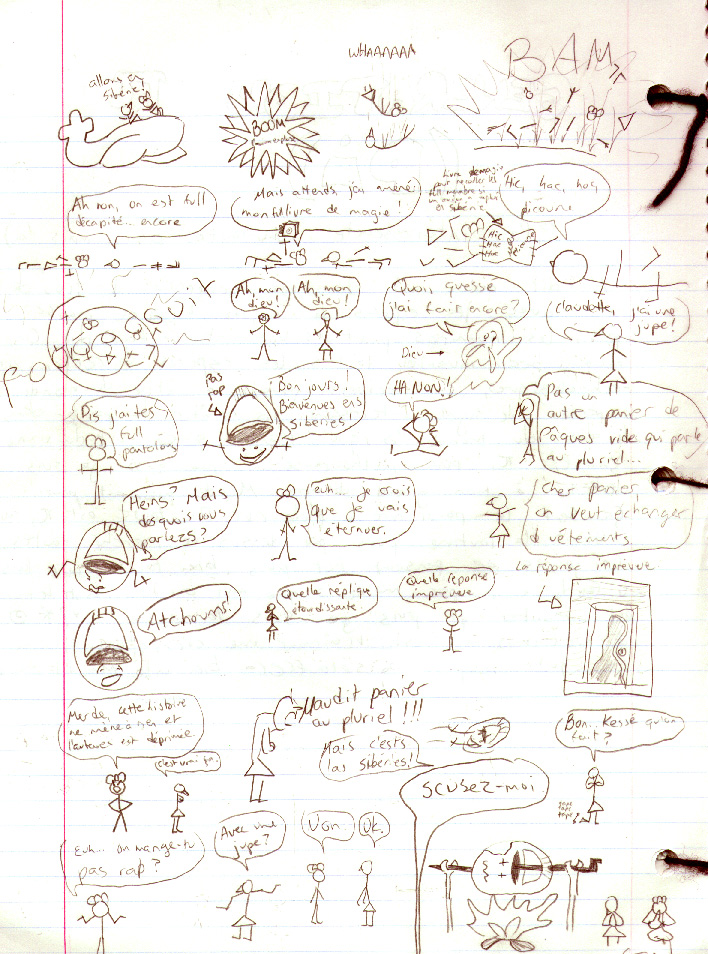 WHAAAAAA
BAM
allons en
sibérie!
BOOM
Ah non, on est full
décapité... encore
Mais attends, j'ai amené
mon full livre de magie!
Livre de magie
pour recoller les
full membre si
en sibérie
Hic, hac, hoc,
picourni
Hic
Hac
Hoc
Ah, mon
dieu!
Ah, mon
dieu!
Quoi, quessé
j'ai fait encore?
Dieu →
Claudette, j'ai une
jupe!
Pis j'ai tes
full
pantalons
Pas
rap
Bonjours!
Bienvenues ens
sibéries!
HA NON!
Pas un
autre panier de
Pâques vide qui parle
au pluriel...
Heins? Mais
des quois vous
parlezs?
euh... je crois
que je vais
éternuer.
Cher panier,
on veut échanger
d vêtements.
Atchoums!
Quelle réplique
étourdissante.
Quelle réponse
imprévue
La réponse imprévue
Merde, cette histoire
ne mène à rien et
l'auteure est déprimée.
c'est vrai ça.
Maudit panier
au pluriel!!!
Mais c'ests
las sibéries!
Bon... Kessé qu'on
fait?
tape
tape
tape
SCUSEZ-MOI
Euh... on mange-tu
pas rap?
Avec une
jupe?
Von.
Ok.